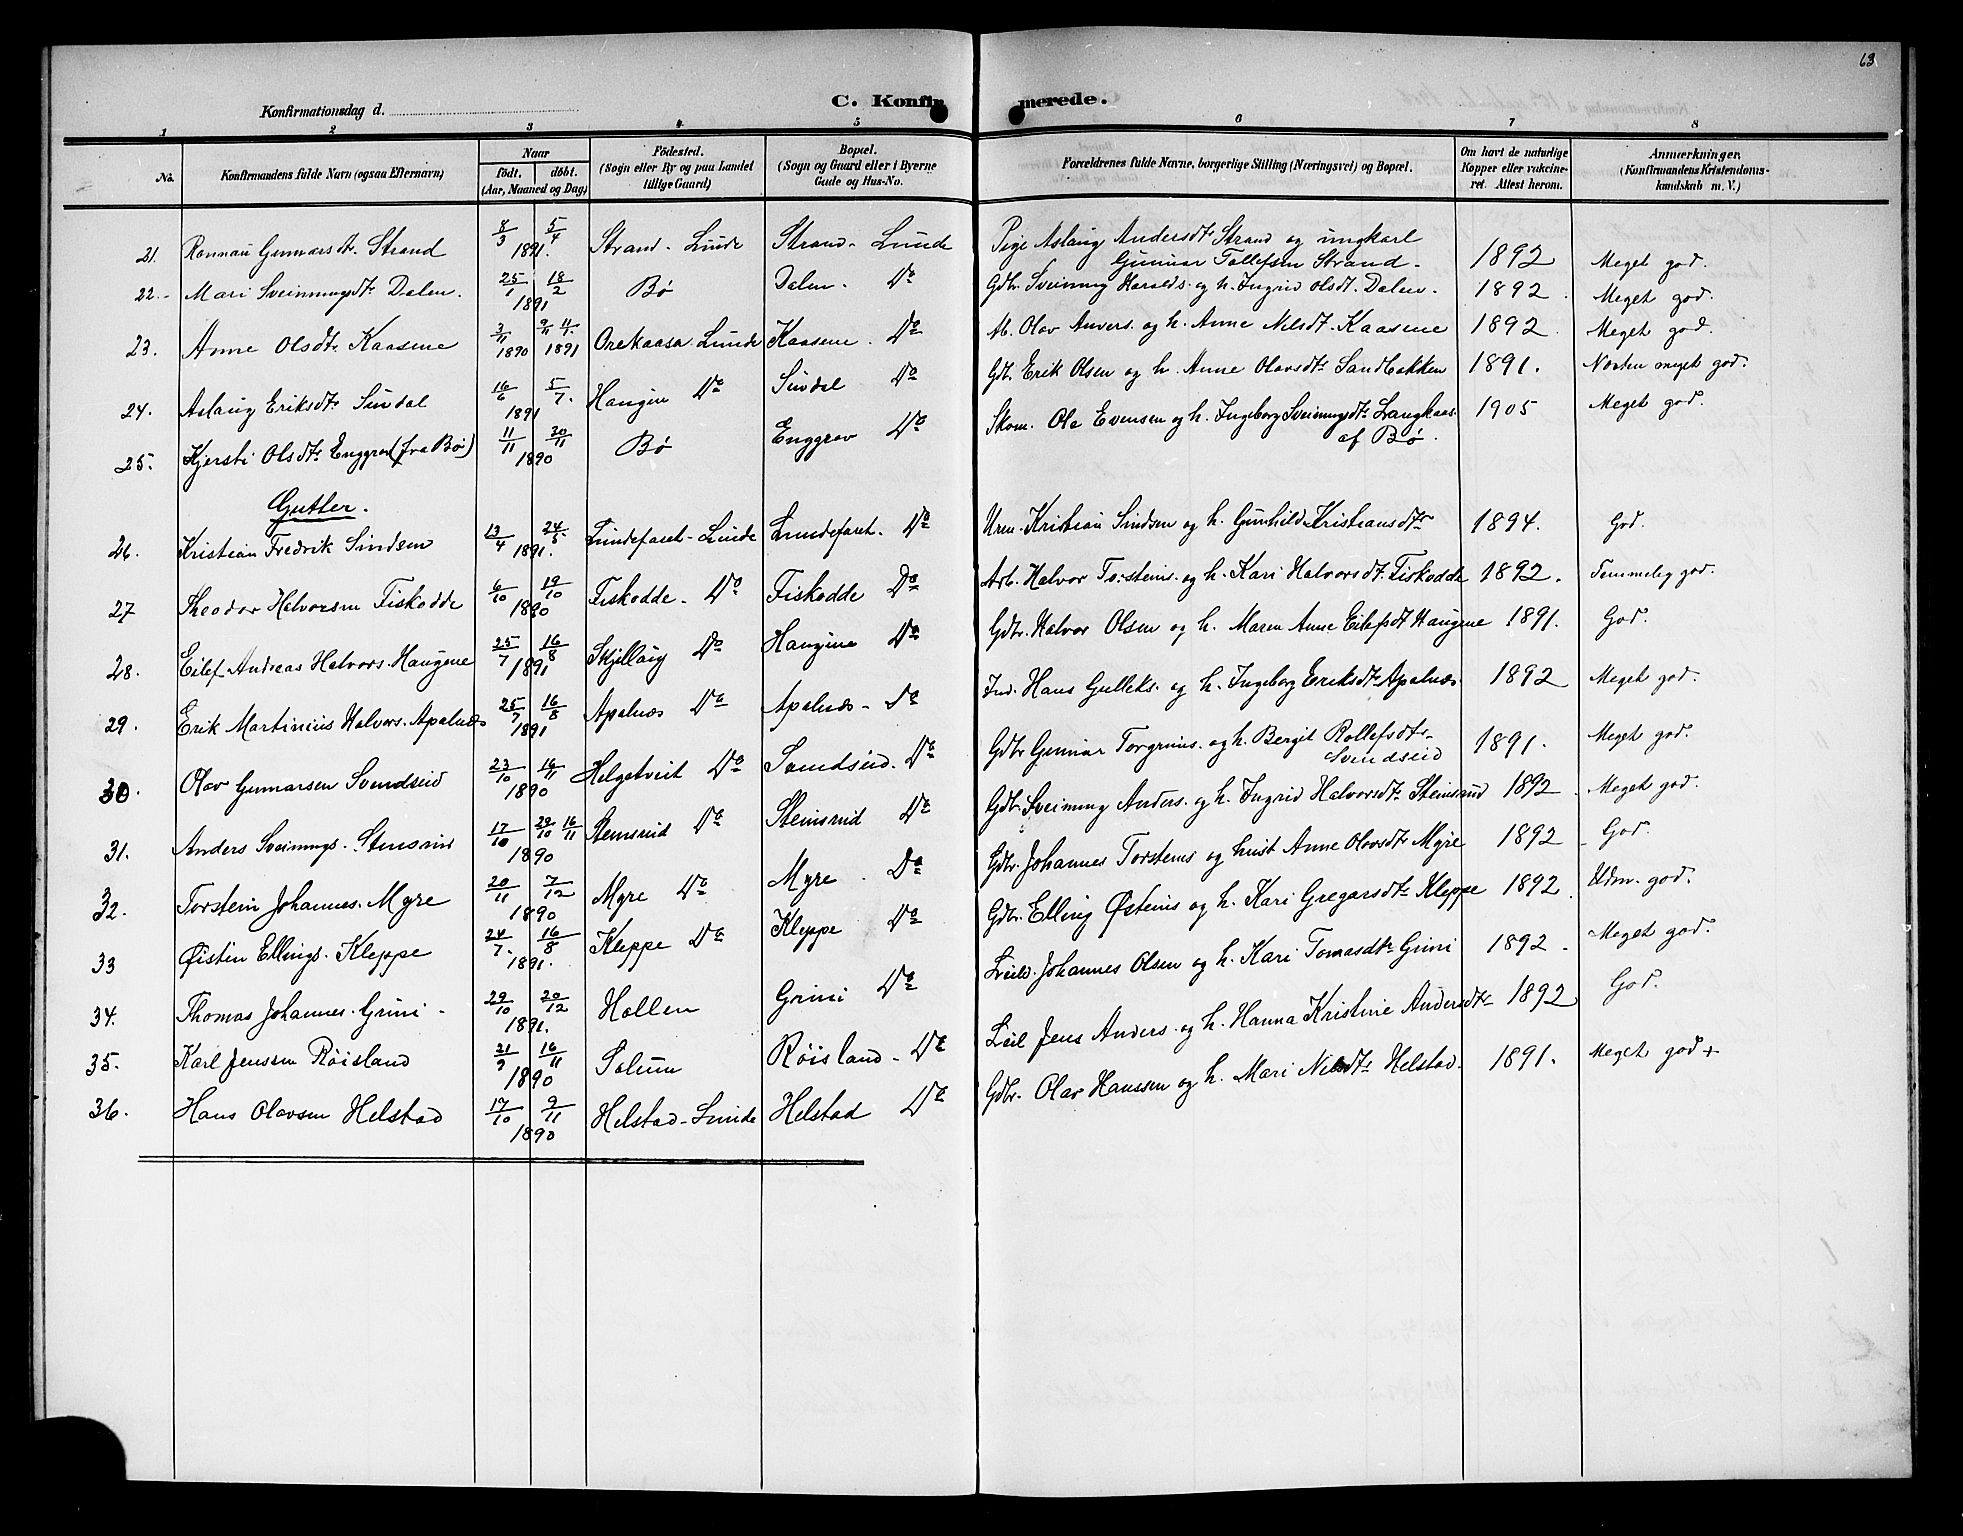 63
Konfirmationsdag d.
C. Konfirmerede.
1 2 3 4 5 6 7 8
No. Konfirmandens fulde Navn (ogsaa Efternavn) Naar født. døbt. (Aar, Maaned og Dag) Fødested. (Sogn eller By og paa Landet tillige Gaard) Bopæl. (Sogn og Gaard eller i Byerne Gade og Hus-No. Forældrenes fulde Navne, borgerlige Stilling (Næringsvei) og Bopæl. Om havt de naturlige Kopper eller vakcineret. Attest herom. Anmærkninger. (Konfirmandens Kristendomskundskab m. V.)
21. Ronnau Gunnarsdtr Strand 8/3 5/4 1891. Strand - Lunde Strand - Lunde Pige Aslaug Andersdtr Strand og ungkarl Gunnar Tollefsen Strand. 1892 Meget god.
22. Mari Sveinungsdtr Dalen. 25/1 18/2 1891 Bø Dalen. Do Gdbr. Sveinung Haralds. og h. Ingrid Olsdt. Dalen. 1892. Meget god.
23. Anne Olsdtr Kaasene 3/11 1890 9/11 4/1 1891 Orekaasa. Lunde Kaasene. Do Ab. Olav Anvers. og h. Anne Nilsdt. Kaasene 1892. Meget god.
24. Aslaug Eriksdtr Sindal 16/6 5/7. 1891 Haugen Do Sindal Do Gdb. Erik Olsen og h. Anne Olavsdtr Sandbakken 1891. Næsten meget god.
25. Kjersti Olsdtr Enggrav (fra Bø) 11/11 20/11 1890 Bø Enggrav Do Skom. Ole Evensen og h. Ingeborg Sveinungsdtr Langkaas af Bø. 1905 Meget god.
Gutter.
26. Kristian Fredrik Sindsen 13/4 24/5 1891. Lundefaret - Lunde Lundefaret. Do Urm. Kristian Sindsen og h. Gunhild Kristiansdtr 1894. God.
27 Theodor Halvorsen Fiskodde 6/10 19/10 1890 Fiskodde. Do Fiskodde Do Arb. Halvor Torsteins. og h. Kari Halvorsdt. Fiskodde 1892. Temmelig god.
28. Eilef Andreas Halvors. Haugene 25/7 16/8 1891 Skjellaug Do Haugene Do Gdbr. Halvor Olsen og h. Maren Anne Eilefsdt Haugene 1891. God.
29. Erik Martinius Halvors. Apalnæs 25/7 16/8 1891 Apalnæs Do Apalnæs - Do Ind. Hans Gulleks. og h. Ingeborg Eriksdtr Apalnæs. 1892 Meget god.
30. Olav Gunnarsen Svendseid 23/10 16/11 1890 Helgetveit Do Svendseid. Do Gdbr Gunnar Torgrims. og h. Bergit Rollefsdtr Svendseid 1891. Meget god.
31. Anders Sveinungs. Stensrud 17/10 29/10 16/11 1890 Stensrud Do Steinsrud Do Gdbr. Sveinung Anders. og h. Ingrid Halvorsdtr Steinsrud 1892. Meget god.
32. Torstein Johannes. Myre 20/11 7/12 1890 Myre Do Myre. Do Gdbr. Johannes Torsteins og hust Anne Olavsdtr Myre 1892. God.
33 Øistein Ellings. Kleppe 24/7. 16/8 1891. Kleppe Do Kleppe Do Gdbr. Elling Østeins og h. Kari Gregarsdtr Kleppe 1892. Udm. god.
34. Thomas Johannes. Grini - 29/10 20/12 1891. Hollen Grini Do Leil. Johannes Olsen og h. Kari Tomasdtr Grini 1892. Meget god.
35. Karl Jenssen Røisland 21/9 16/11 1890 Solum Røisland - Do Leil Jens Anders. og h. Hanna Kristine Andersdtr 1892 God.
36. Hans Olavsen Helstad 17/10 9/11 1890 Helstad - Lunde Helstad Do Gdbr. Olav Hanssen og h. Mari Nilsdtr Helstad. 1891. Meget god +